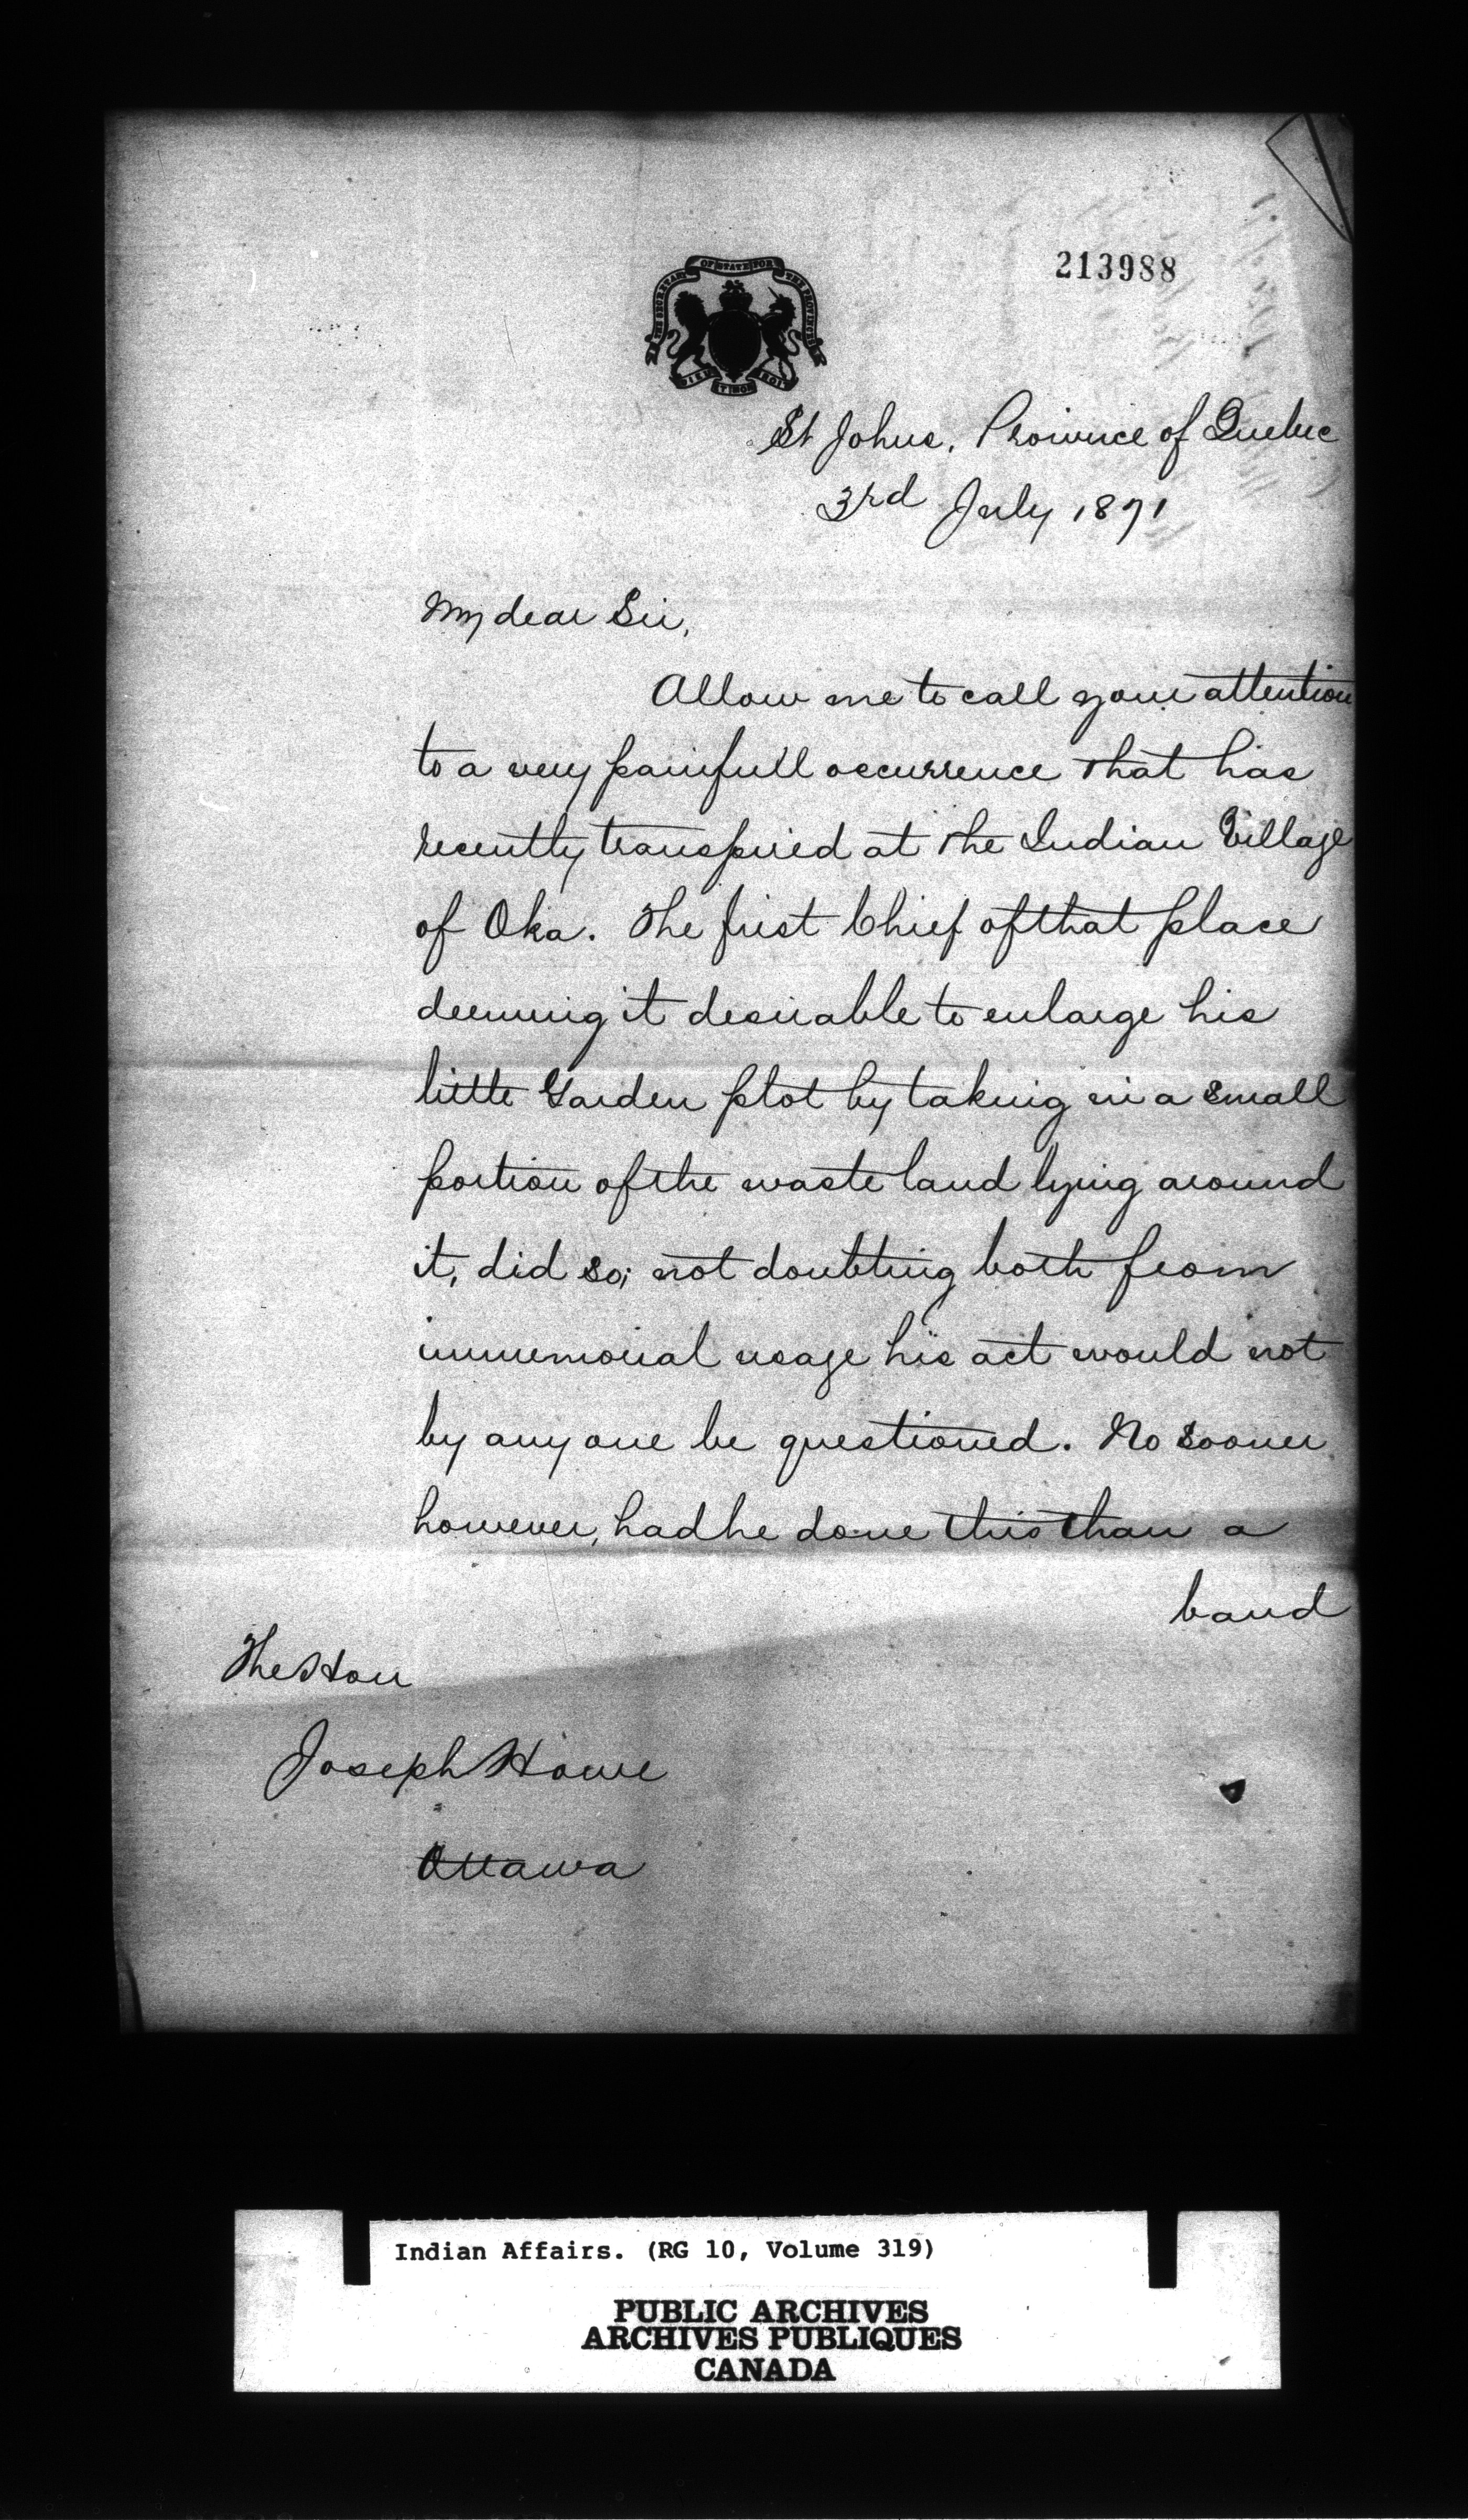 213988
THE SECRETARY OF STATE FOR THE PROVINCES
DIEU ET MON DROIT
St Johns, Province of Quebec
3rd July 1871
My dear Sir,
Allow me to call your attention
to a very painfull occurrence that has
recently transpired at the Indian Village
of Oka. The first Chief of that place
deeming it desirable to enlarge his
little Garden plot by taking in a small
portion of the waste land lying around
it, did so; not doubting both from
immemorial usage his act would not
by any one be questioned. No sooner
however, had he done this than a
band
The Hon
Joseph Howe
Ottawa
Indian Affairs. (RG 10, Volume 319)
PUBLIC ARCHIVES
ARCHIVES PUBLIQUES
CANADA